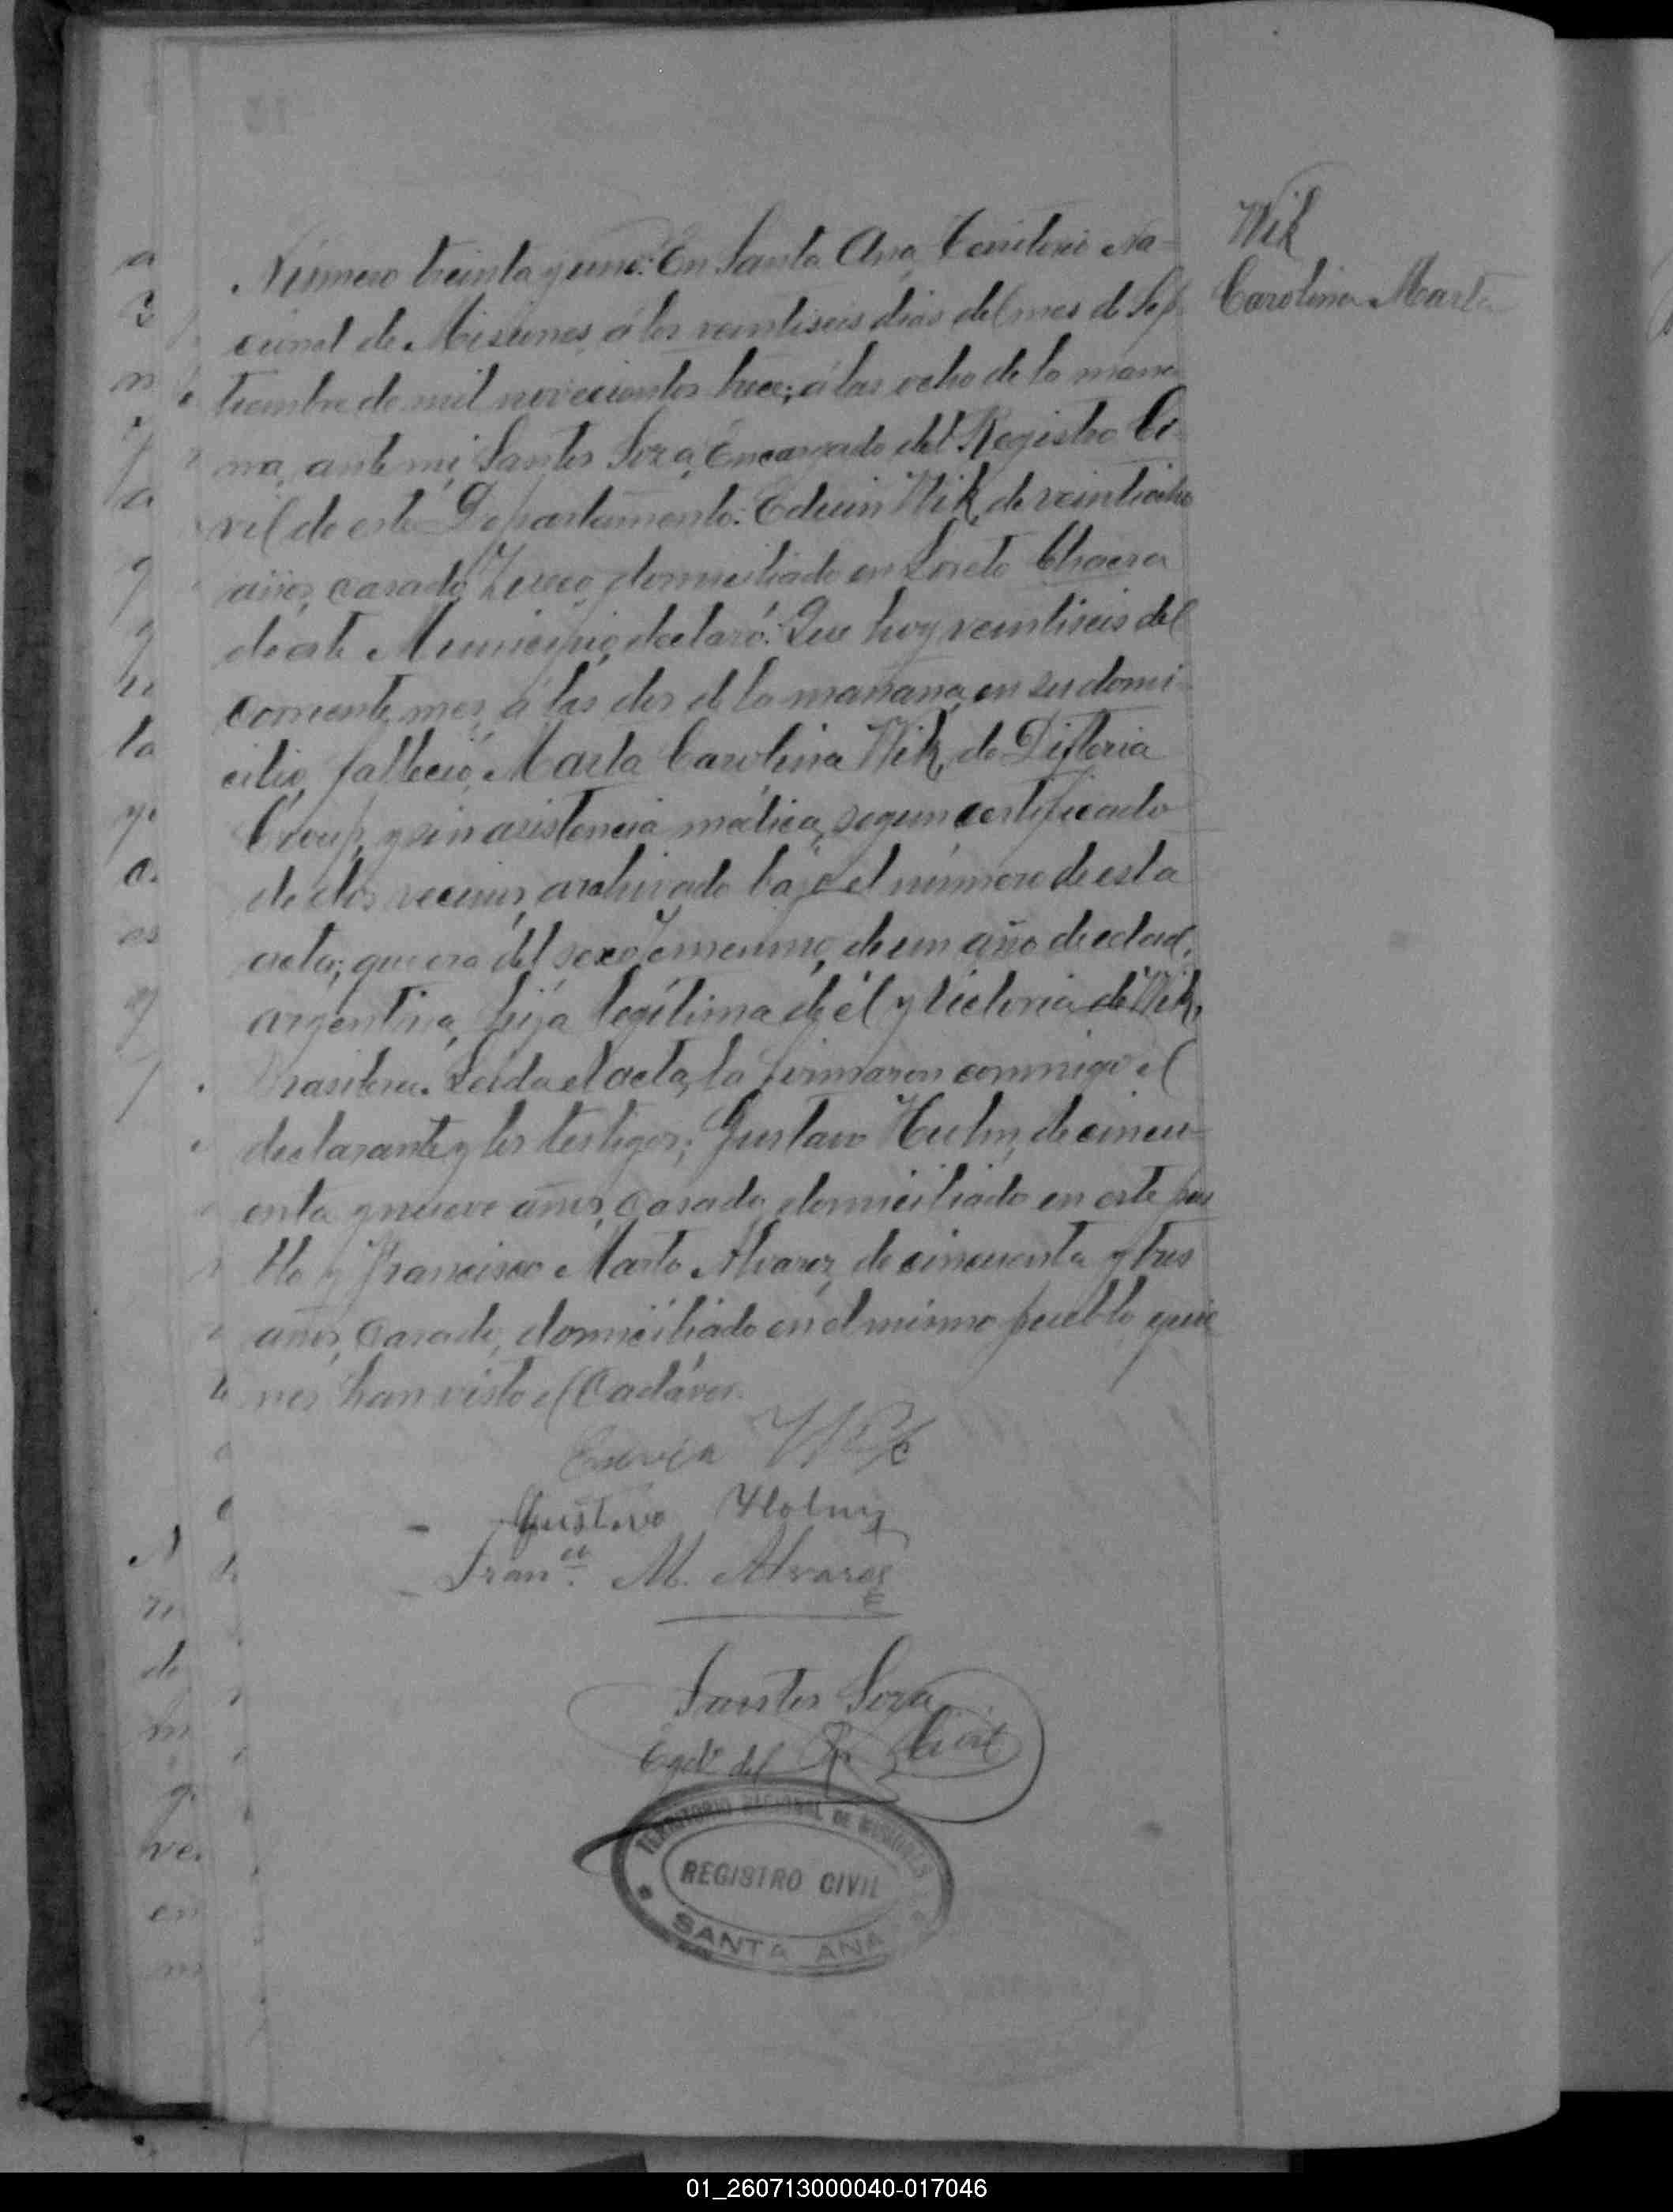 Wik
Carolina Marta
Número treinta y uno: En Santa Ana, Territorio Na-
cional de Misiones, á los veintiseis dias del mes de Sep-
tiembre de mil novecientos trece; á las ocho de la maña-
na, ante mi, Santos Soza, Encargado del Registro Ci-
vil de este Departamento: Edwin Wik, de veintiocho
años, casado, Sueco, domiciliado en Loreto Chacra
de este Municipio, declaró: Que hoy veintiseis del
corriente mes, á las dos de la mañana, en su domi-
cilio, falleció, Marta Carolina Wik, de Difteria
Croup, y sin asistencia médica, segun certificado
de dos vecinos, archivado bajo el número de esta
acta; que era del sexo femenino, de un año de edad,
argentina, hija legítima de él y Victoria de Wik,
brasilera. Leida el acta, la firmaron conmigo el
declarante y los testigos; Gustavo Holm, de cincu-
enta y nueve años, casado, domiciliado en este pue
blo y Francisco Marto Alvarez, de cincuenta y tres
años, casado, domiciliado en el mismo pueblo, quie
nes han visto el Cadáver.
Edwin Wik
Gustavo Holm
Franco. M. Alvarez
Santos Soza
Egdo. del R. Civil
TERRITORIO NACIONAL DE MISIONES
REGISTRO CIVIL
SANTA ANA
01_260713000040-017046